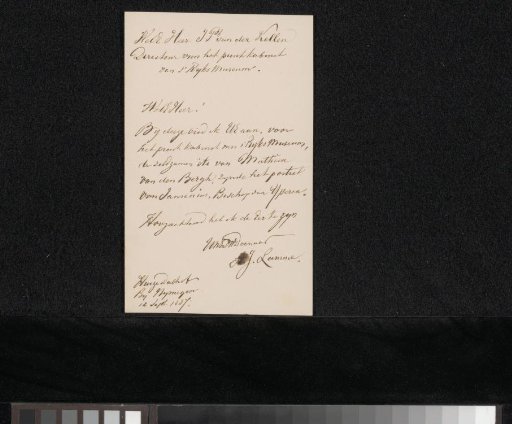 WelE Heer J Ph van der Kellen
Directeur van het prent kabinet
van 's Ryks Museum.
WelE Heer!
By deze bied ik UE aan, voor
het prent kabinet van 's Ryks Museum,
de zeldzame ets van Mathias
van den Bergh, zynde het portret
van Jansenius, Bisschop van Yperen.
Hoogachtend heb ik de Eer te zyn
UwE Dienaar
J. Lamme.
By Nymegen
14 Sept.